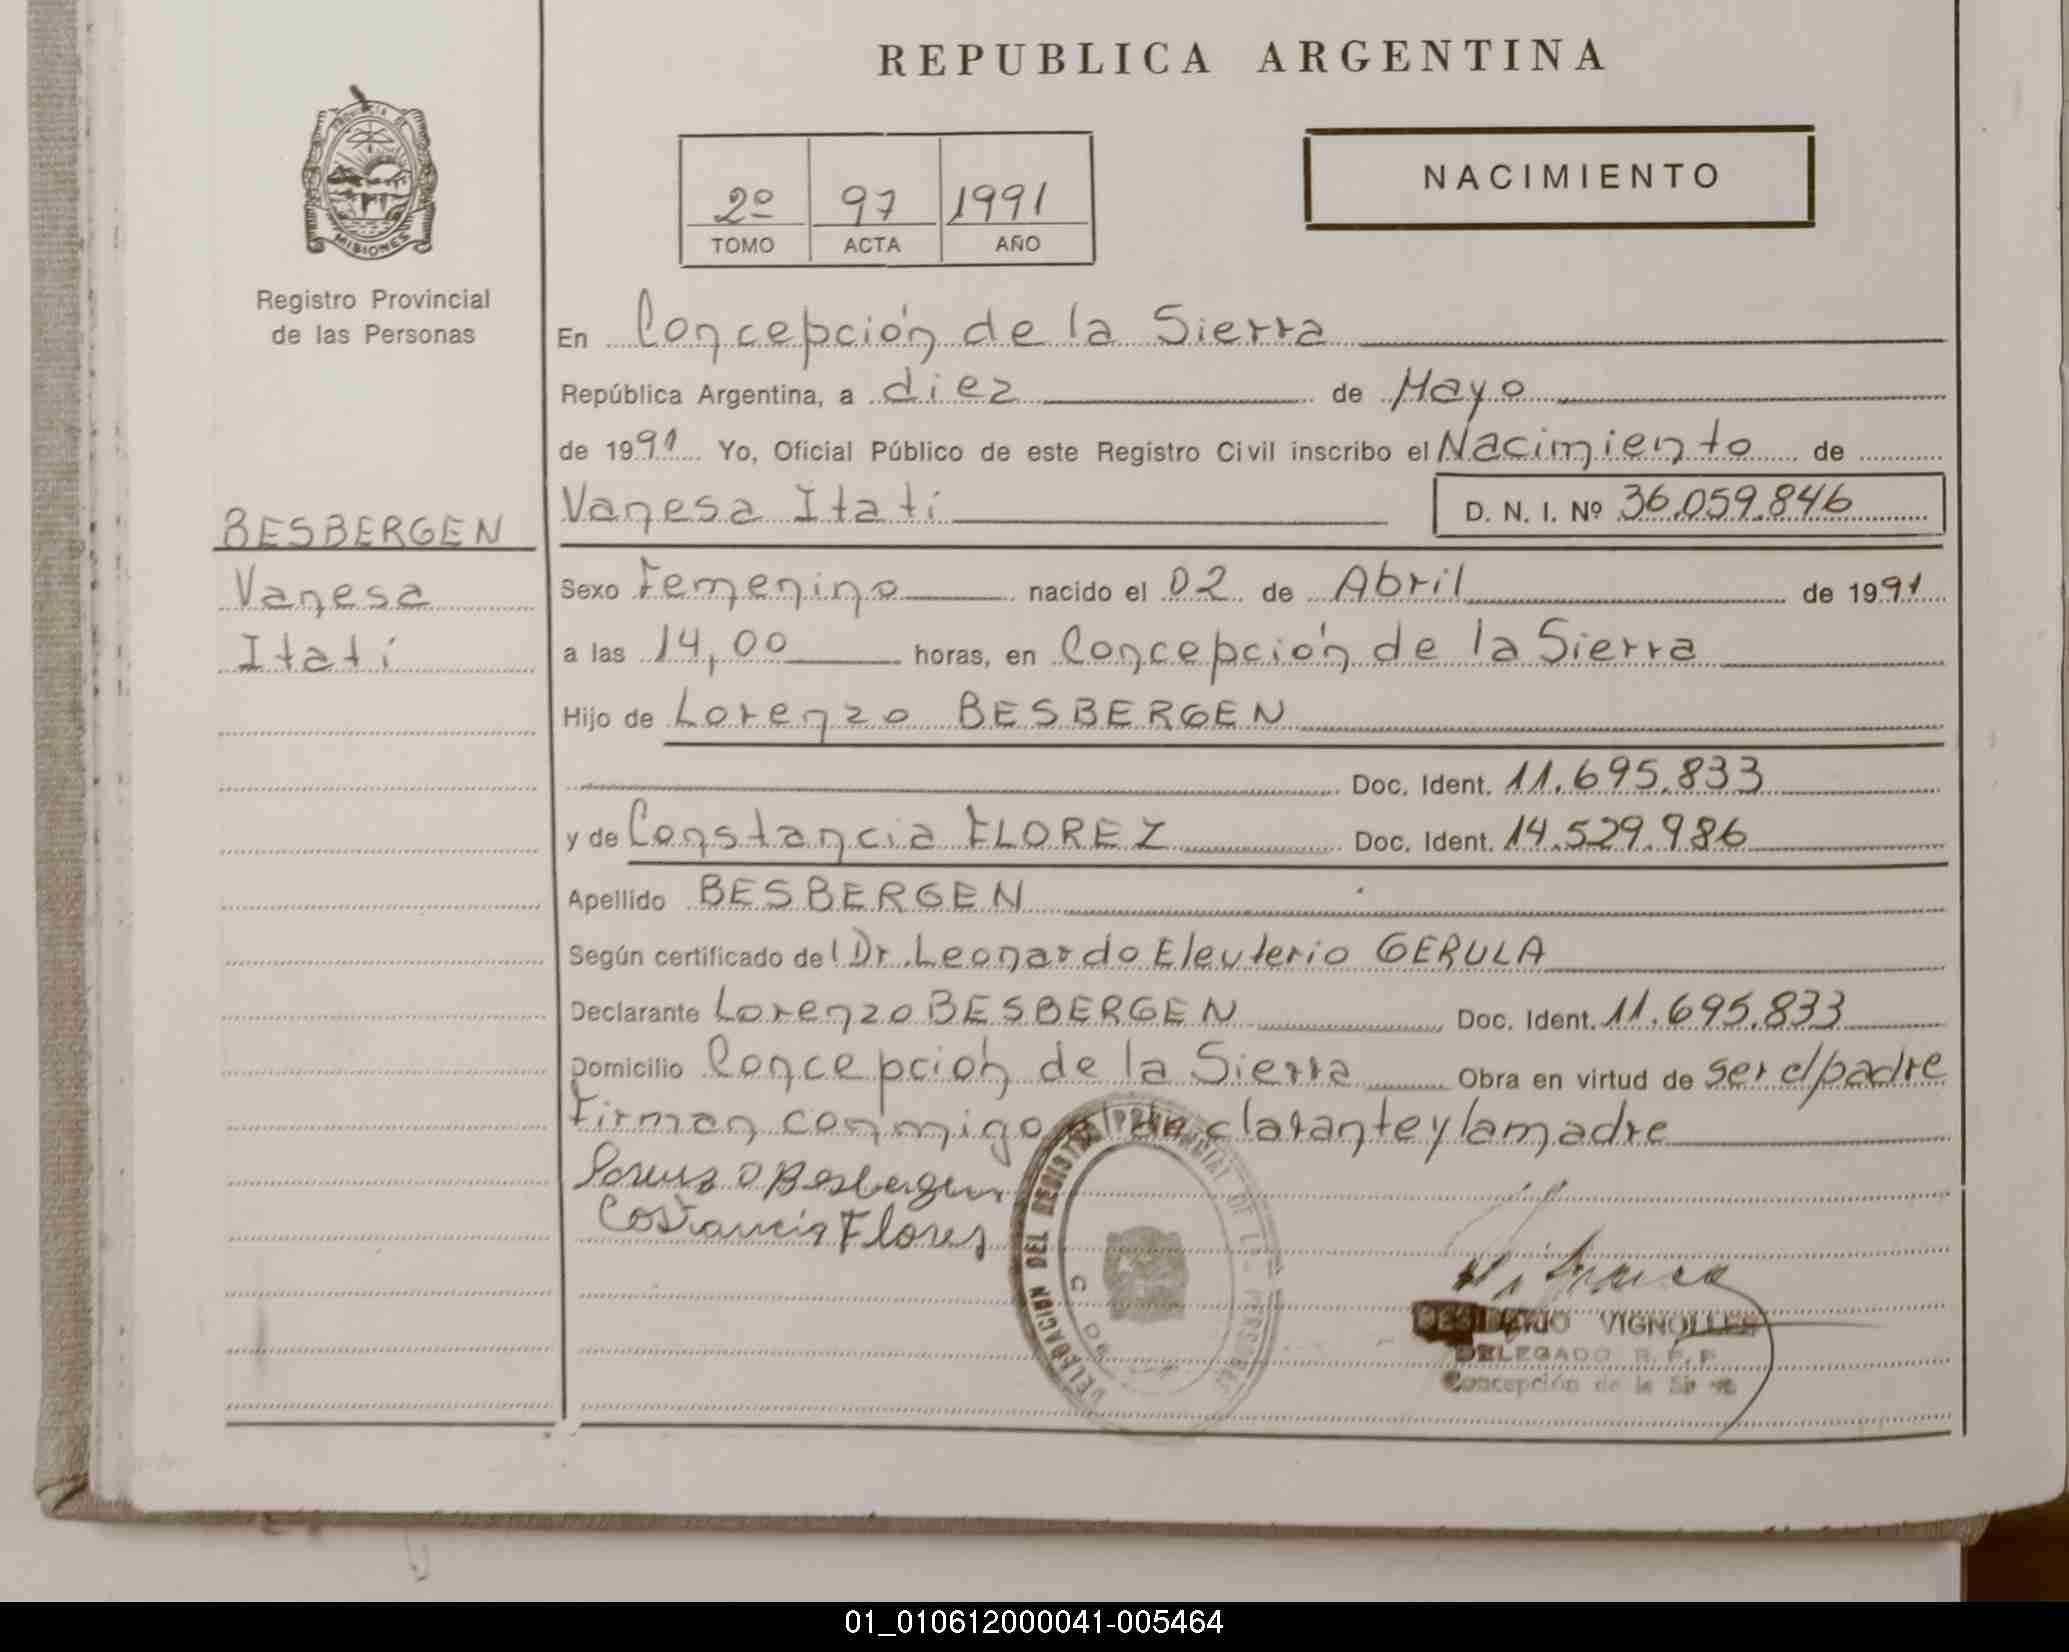 REPUBLICA ARGENTINA
PROVINCIA DE MISIONES
Registro Provincial
de las Personas
2º 97 1991
TOMO ACTA AÑO
NACIMIENTO
En Concepción de la Sierra
República Argentina, a diez de Mayo
de 1991 Yo, Oficial Público de este Registro Civil inscribo el Nacimiento de
Vanesa Itati D. N. I. Nº 36.059.846
BESBERGEN
Vanesa
Itati
Sexo Femenino nacido el 02 de Abril de 1991
a las 14,00 horas, en Concepción de la Sierra
Hijo de Lorenzo BESBERGEN
Doc. Ident. 11.695.833
y de Constancia FLOREZ Doc. Ident. 14.529.986
Apellido BESBERGEN
Según certificado del Dr. Leonardo Eleuterio GERULA
Declarante Lorenzo BESBERGEN Doc. Ident. 11.695.833
Domicilio Concepción de la Sierra Obra en virtud de ser el padre
Firman conmigo el declarante y la madre
Lorenzo Besbergen
Costancia Flores
DELEGACION DEL REGISTRO PROVINCIAL DE LAS PERSONAS
VIGNOLLES
DELEGADO R. P. P.
Concepción de la
01_010612000041-005464